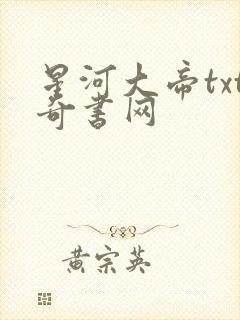 星河大帝txt
奇书网
黄宗英